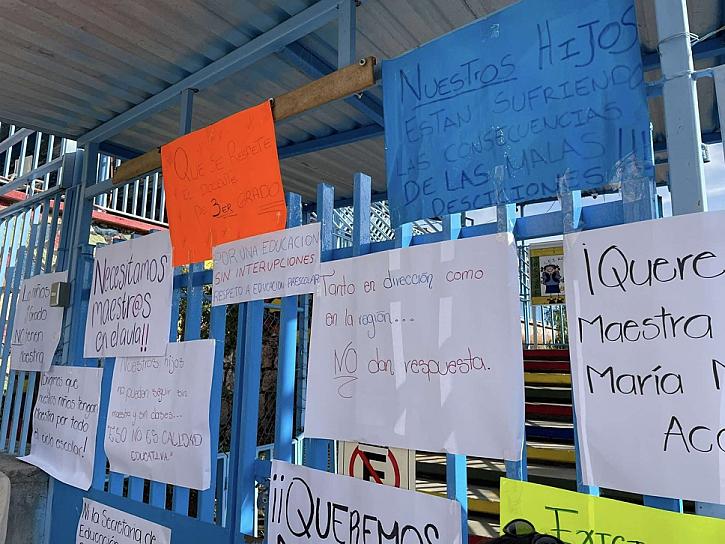 QUE SE RESPETE
EL DOCENTE
DE 3ER GRADO
NUESTROS HIJOS
ESTAN SUFRIENDO
LAS CONSECUENCIAS
DE LAS MALAS
DESCICIONES!!!
Necesitamos
maestr@s
en el aula!!
POR UNA EDUCACIÓN
SIN INTERUPCIONES
RESPETO A EDUCACION PREESCOLAR
Tanto en dirección como
en la región...
NO dan respuesta.
¡Quere
Maestra
María M
Aco
niños
grado
NO tienen
maestra
Exigimos que
nuestros niños tengan
Maestra por todo
el ciclo escolar!
Nuestros hijos
no pueden seguir sin
maestra y sin clases...
ESO NO ES CALIDAD
EDUCATIVA
Ni la Secretaría de
Educación
¡¡QUEREMOS
E
Exigi